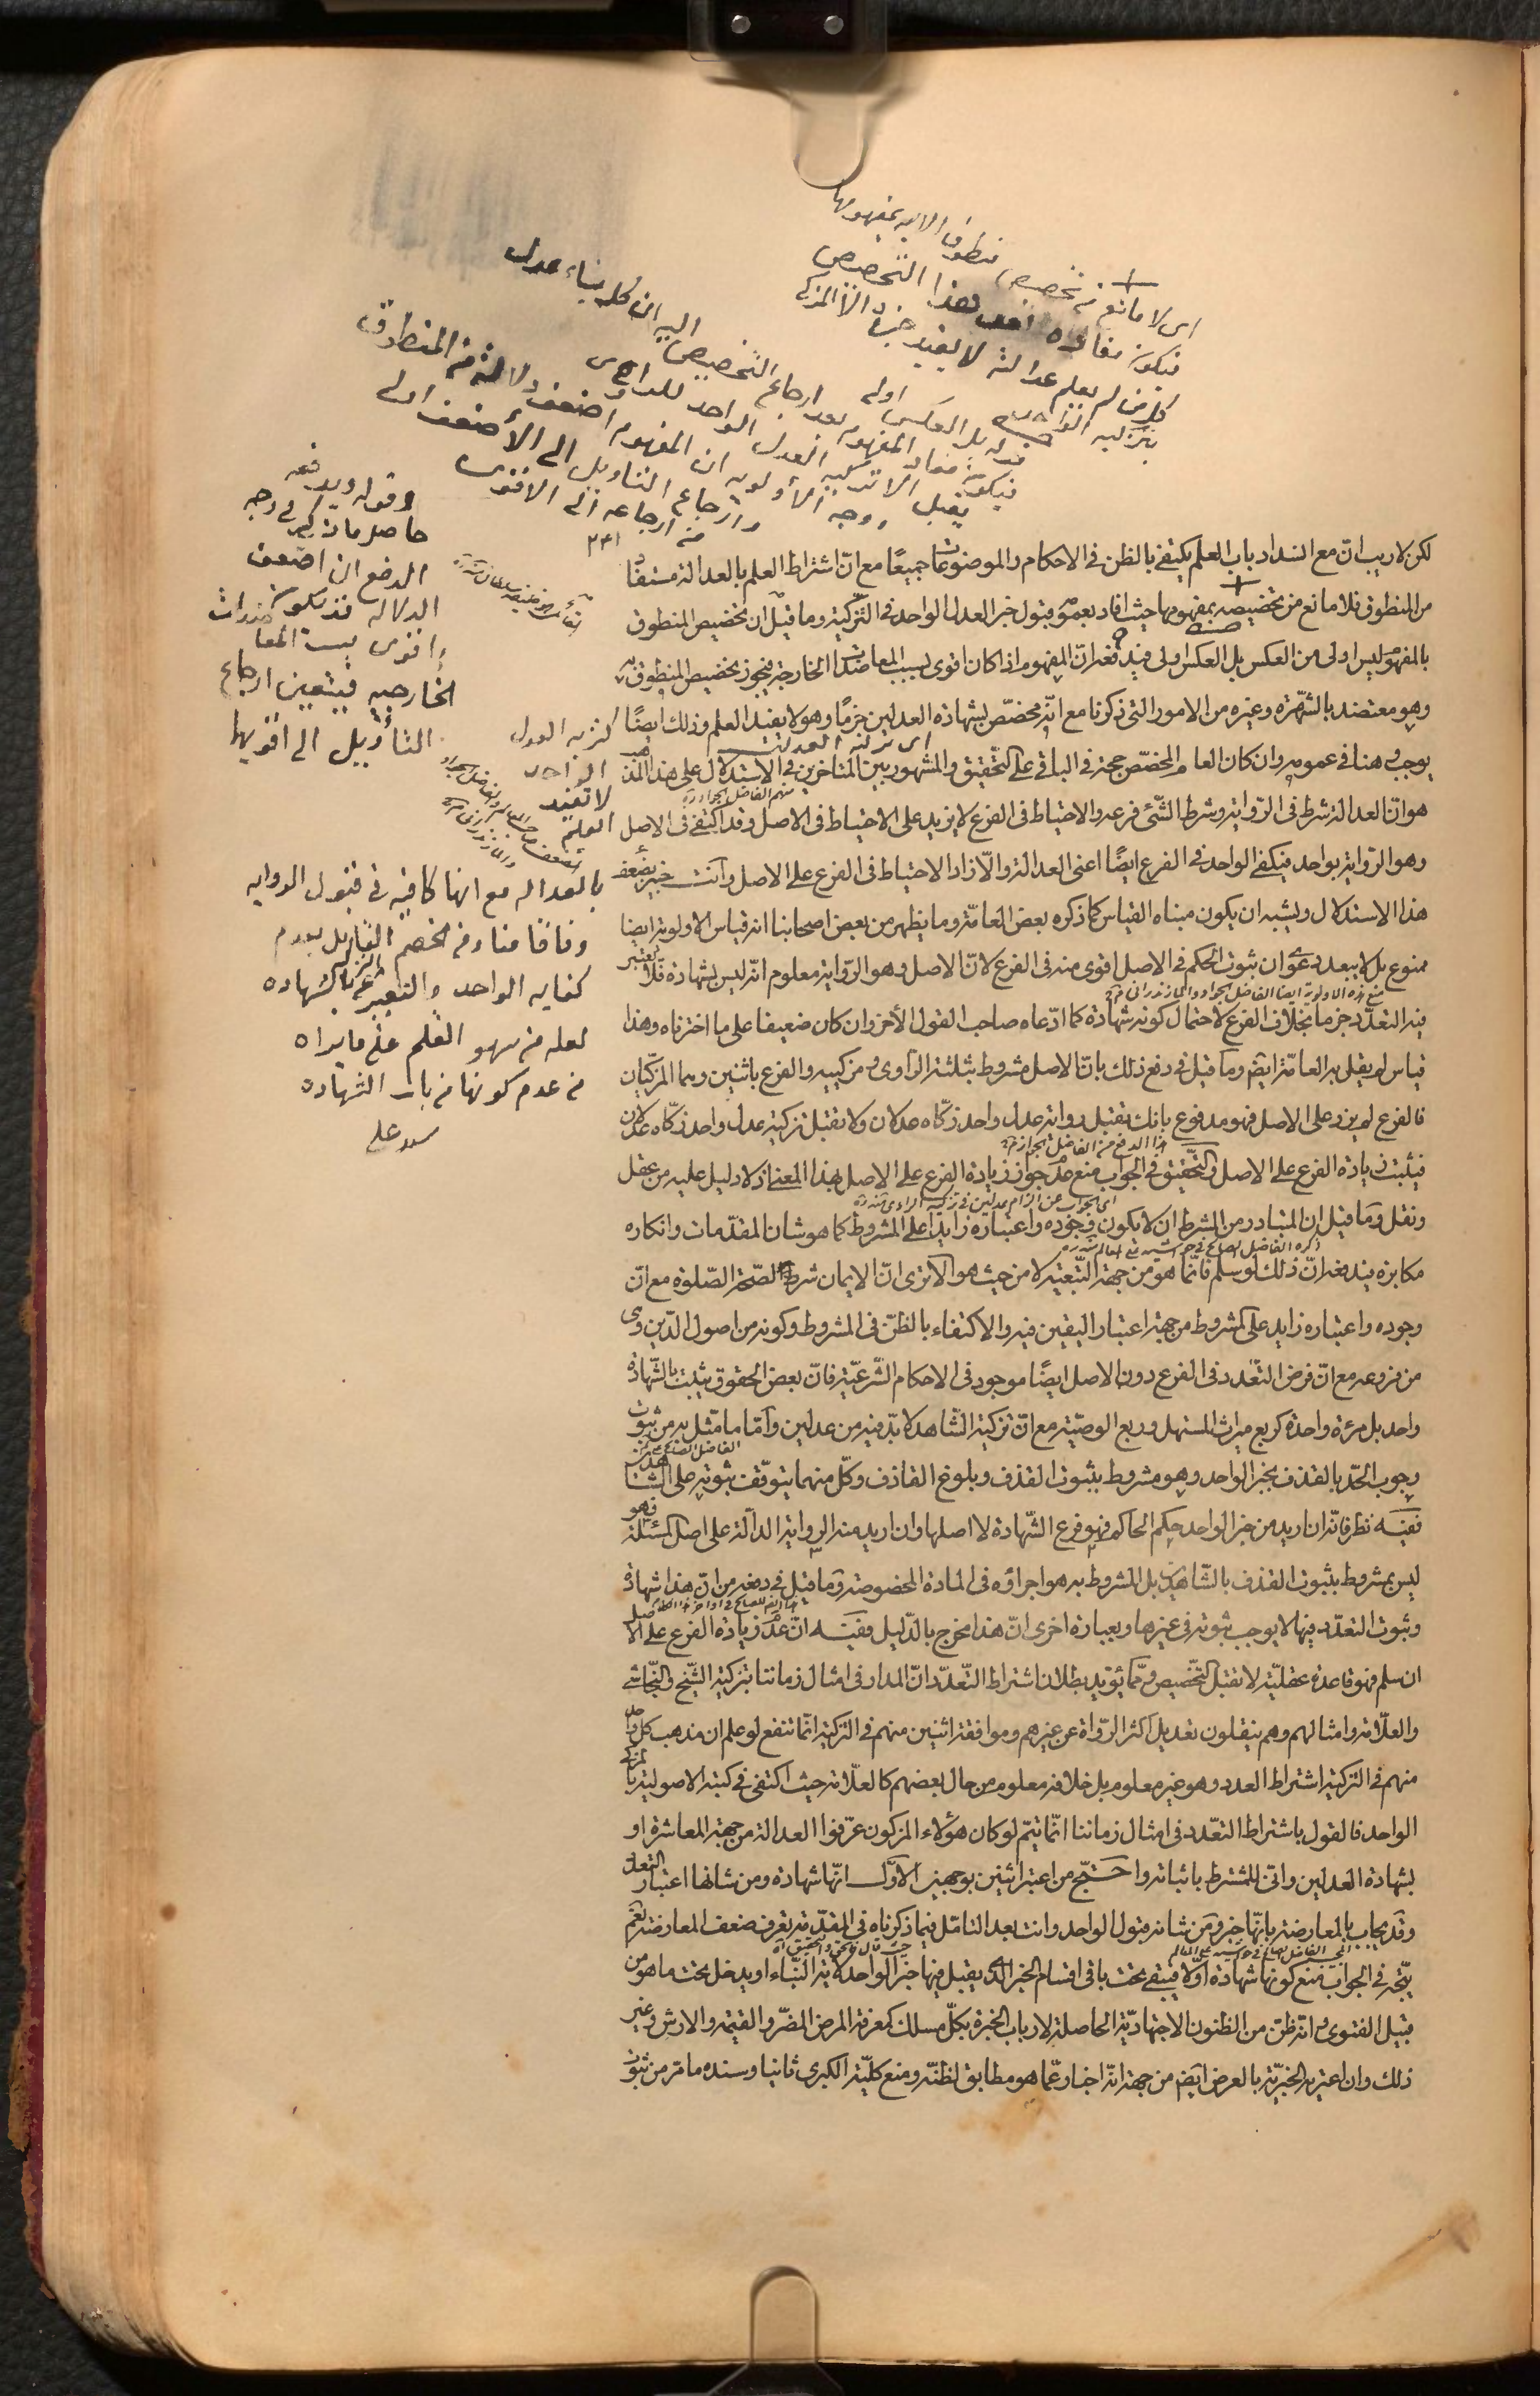 اى لا مانع من تخصيص منطوق الايه بمفهومها
فيكون مفاده بهذا التخصيص
كل من لم يعلم عدالته لا يفيد خبره الا المزكى
بتزكيه الواحد
بل العكس اولى
فيكون مفاد المفهوم بعد ارجاع التخصيص اليه ان كل بناء عدل
يقبل الا تزكيه العدل الواحد للراوى
ووجه الأولويه ان المفهوم اضعف دلالة من المنطوق
وارجاع التاويل الى الأضعف اولى
من ارجاعه الى الاقوى
وقوله ويدفعه
حاصل ما ذكر فى وجه
الدفع ان اضعف
الدلاله قد تكون
اقوى بسبب المعاضدات
الخارجيه فيتعين ارجاع
التأويل الى اقويها
لكن لا ريب انّ مع انسداد باب العلم يكتفى بالظن فى الاحكام والموضوعات جميعًا مع انّ اشتراط العلم بالعدالة مستفاد
من المنطوق فلا مانع من تخصيصه بمفهومها حيث افاد بعمومه قبول خبر العدل الواحد فى التّزكية وما قيل ان تخصيص المنطوق
بالمفهوم ليس اولى من العكس بل العكس اولى فيدفعه ان المفهوم اذا كان اقوى بسبب المعاضدات الخارجية فيجوز تخصيص المنطوق به
وهو معتضد بالشّهرة وغيره من الامور التى ذكرنا مع انّه مخصّص بشهادة العدلين جزمًا وهو لا يفيد العلم وذلك ايضًا
اى تزكية العدلين
كتزكيه العدل الواحد لا تفيد العلم
يوجب وهنا فى عمومه وان كان العام المخصّص حجة فى الباقى على التّحقيق والمشهور بين المتاخرين فى الاستدلال على هذا المذهب
منهم الفاضل الجواد ره
هو انّ العدالة شرط فى الرّواية وشرط الشّئ فرعه والاحتياط فى الفرع لا يزيد على الاحتياط فى الاصل وقد اكتفى فى الاصل
وهو الرّواية بواحد فيكفى الواحد فى الفرع ايضًا اعنى العدالة والّا زاد الاحتياط فى الفرع على الاصل وانت خبير بضعف
هذا الاستدلال ويشبه ان يكون مبناه القياس كما ذكره بعض العامّة وما يظهر من بعض اصحابنا انه قياس الاولوية ايضا
ممنوع بل لا يبعد دعوى ان ثبوت الحكم فى الاصل اقوى منه فى الفرع لانّ الاصل وهو الرّواية معلوم انّه ليس بشهادة فلا يعتبر
منع هذه الاولوية ايضا الفاضل الجواد والمازندرانى
فيه التعدّد جزما بخلاف الفرع لاحتمال كونه شهادة كما ادّعاه صاحب القول الأخر وان كان ضعيفا على ما اخترناه وهذا
قياس لم يقل به العامّة ايضًا وما قيل فى دفع ذلك بانّ الاصل مشروط بثلثة الرّاوى ومزكييه والفرع باثنين وهما المزكّيان
فالفرع لم يزد على الاصل فهو مدفوع بانك تقبل رواية عدل واحد زكّاه عدلان ولا تقبل تزكية عدل واحد زكّاه عدلان
هذا الدفع من الفاضل الجواد
فيثبت زيادة الفرع على الاصل والتّحقيق فى الجواب منع عدم جواز زيادة الفرع على الاصل بهذا المعنى اذ لا دليل عليه من عقل
ونقل وما قيل ان المتبادر من الشرط ان لا يكون وجوده واعتباره زايدا على المشروط كما هو شان المقدّمات وانكاره
مكابرة يندفع انّ ذلك لو سلم فانّما هو من جهة التّبعيّة لا من حيث هو الا ترى انّ الايمان شرط لصحّة الصّلوة مع انّ
وجوده واعتباره زايد على المشروط من جهة اعتبار اليقين فيه والاكتفاء بالظنّ فى المشروط وكونه من اصول الدّين وهى
من فروعه مع انّ فرض التّعدد فى الفرع دون الاصل ايضًا موجود فى الاحكام الشّرعيّة فانّ بعض الحقوق يثبت بالشّهادة
واحد بل مرءة واحدة كربع ميراث المستهل وربع الوصيّة مع انّ تزكية الشّاهد لا بدّ فيه من عدلين وأمّا ما مثّل به من ثبوت
وجوب الحدّ بالقذف بخبر الواحد وهو مشروط بثبوت القذف وبلوغ القاذف وكلّ منهما يتوقّف ثبوته على الشاهدين
ففيه نظر فانّه ان اريد من خبر الواحد حكم الحاكم فهو فرع الشّهادة لا اصلها وان اريد منه الرواية الدالّة على اصل المسئلة فهو
ليس بمشروط بثبوت القذف بالشّاهدين بل المشروط به هو اجراؤه فى المادة المخصوصة وما قيل فى دفعه من انّ هذا شهادة
وثبوت التعدّد فيها لا يوجب ثبوته فى غيرها وبعبارة اخرى انّ هذا مخرج بالدّليل ففيه انّ عدم زيادة الفرع على الاصل
ان سلم فهو قاعدة عقليّة لا تقبل التّخصيص وممّا يؤيد بطلان اشتراط التّعدّد انّ المدار فى امثال زماننا بتزكية الشّيخ والنّجاشى
والعلّامة وامثالهم وهم ينقلون تعديل اكثر الرّواة عن غيرهم وموافقة اثنين منهم فى التزكية انّما تنفع لو علم ان مذهب كل واحد
منهم فى التزكية اشتراط العدد وهو غير معلوم بل خلافه معلوم من حال بعضهم كالعلّامة حيث اكتفى فى كتبه الاصولية بالمزكى
الواحد فالقول باشتراط التعّدد فى امثال زماننا انّما يتمّ لو كان هؤلاء المزكون عرّفوا العدالة من جهة المعاشرة او
بشهادة العدلين وانّى للمشترط باثباته واحتجّ من اعتبر اثنين بوجهين الاوّل انّها شهادة ومن شانها اعتبار التعدد
وقد يجاب بالمعارضة بانّها خبر ومن شانه قبول الواحد وانت بعد التامّل فيما ذكرناه فى المقدّمة تعرف ضعف المعارضة نعم
يتّجه فى الجواب منع كونها شهادة اوّلا فيبقى تحت باقى اقسام الخبر الّذى يقبل فيها خبر الواحد لاية النّباء او يدخل تحت ما هو من
قبيل الفتوى وانه ظنّ من الظنون الاجتهاديّة الحاصلة لارباب الخبرة بكلّ مسلك كمعرفة المرض المضرّ والقيمة والارش وغير
ذلك وان اعتبر به الخبريّة بالعرض ايضًا من جهة انّه اخبار عمّا هو مطابق لظنّه ومنع كليّة الكبرى ثانيا وسنده ما مرّ من ثبوت
بالعداله مع انها كافيه فى قبول الروايه
وفاقا منا ومن الخصم القايل بعدم
كفايه الواحد والتعبير بالشهاده
لعله من سهو القلم على ما يراه
من عدم كونها من باب الشهاده
سيد على